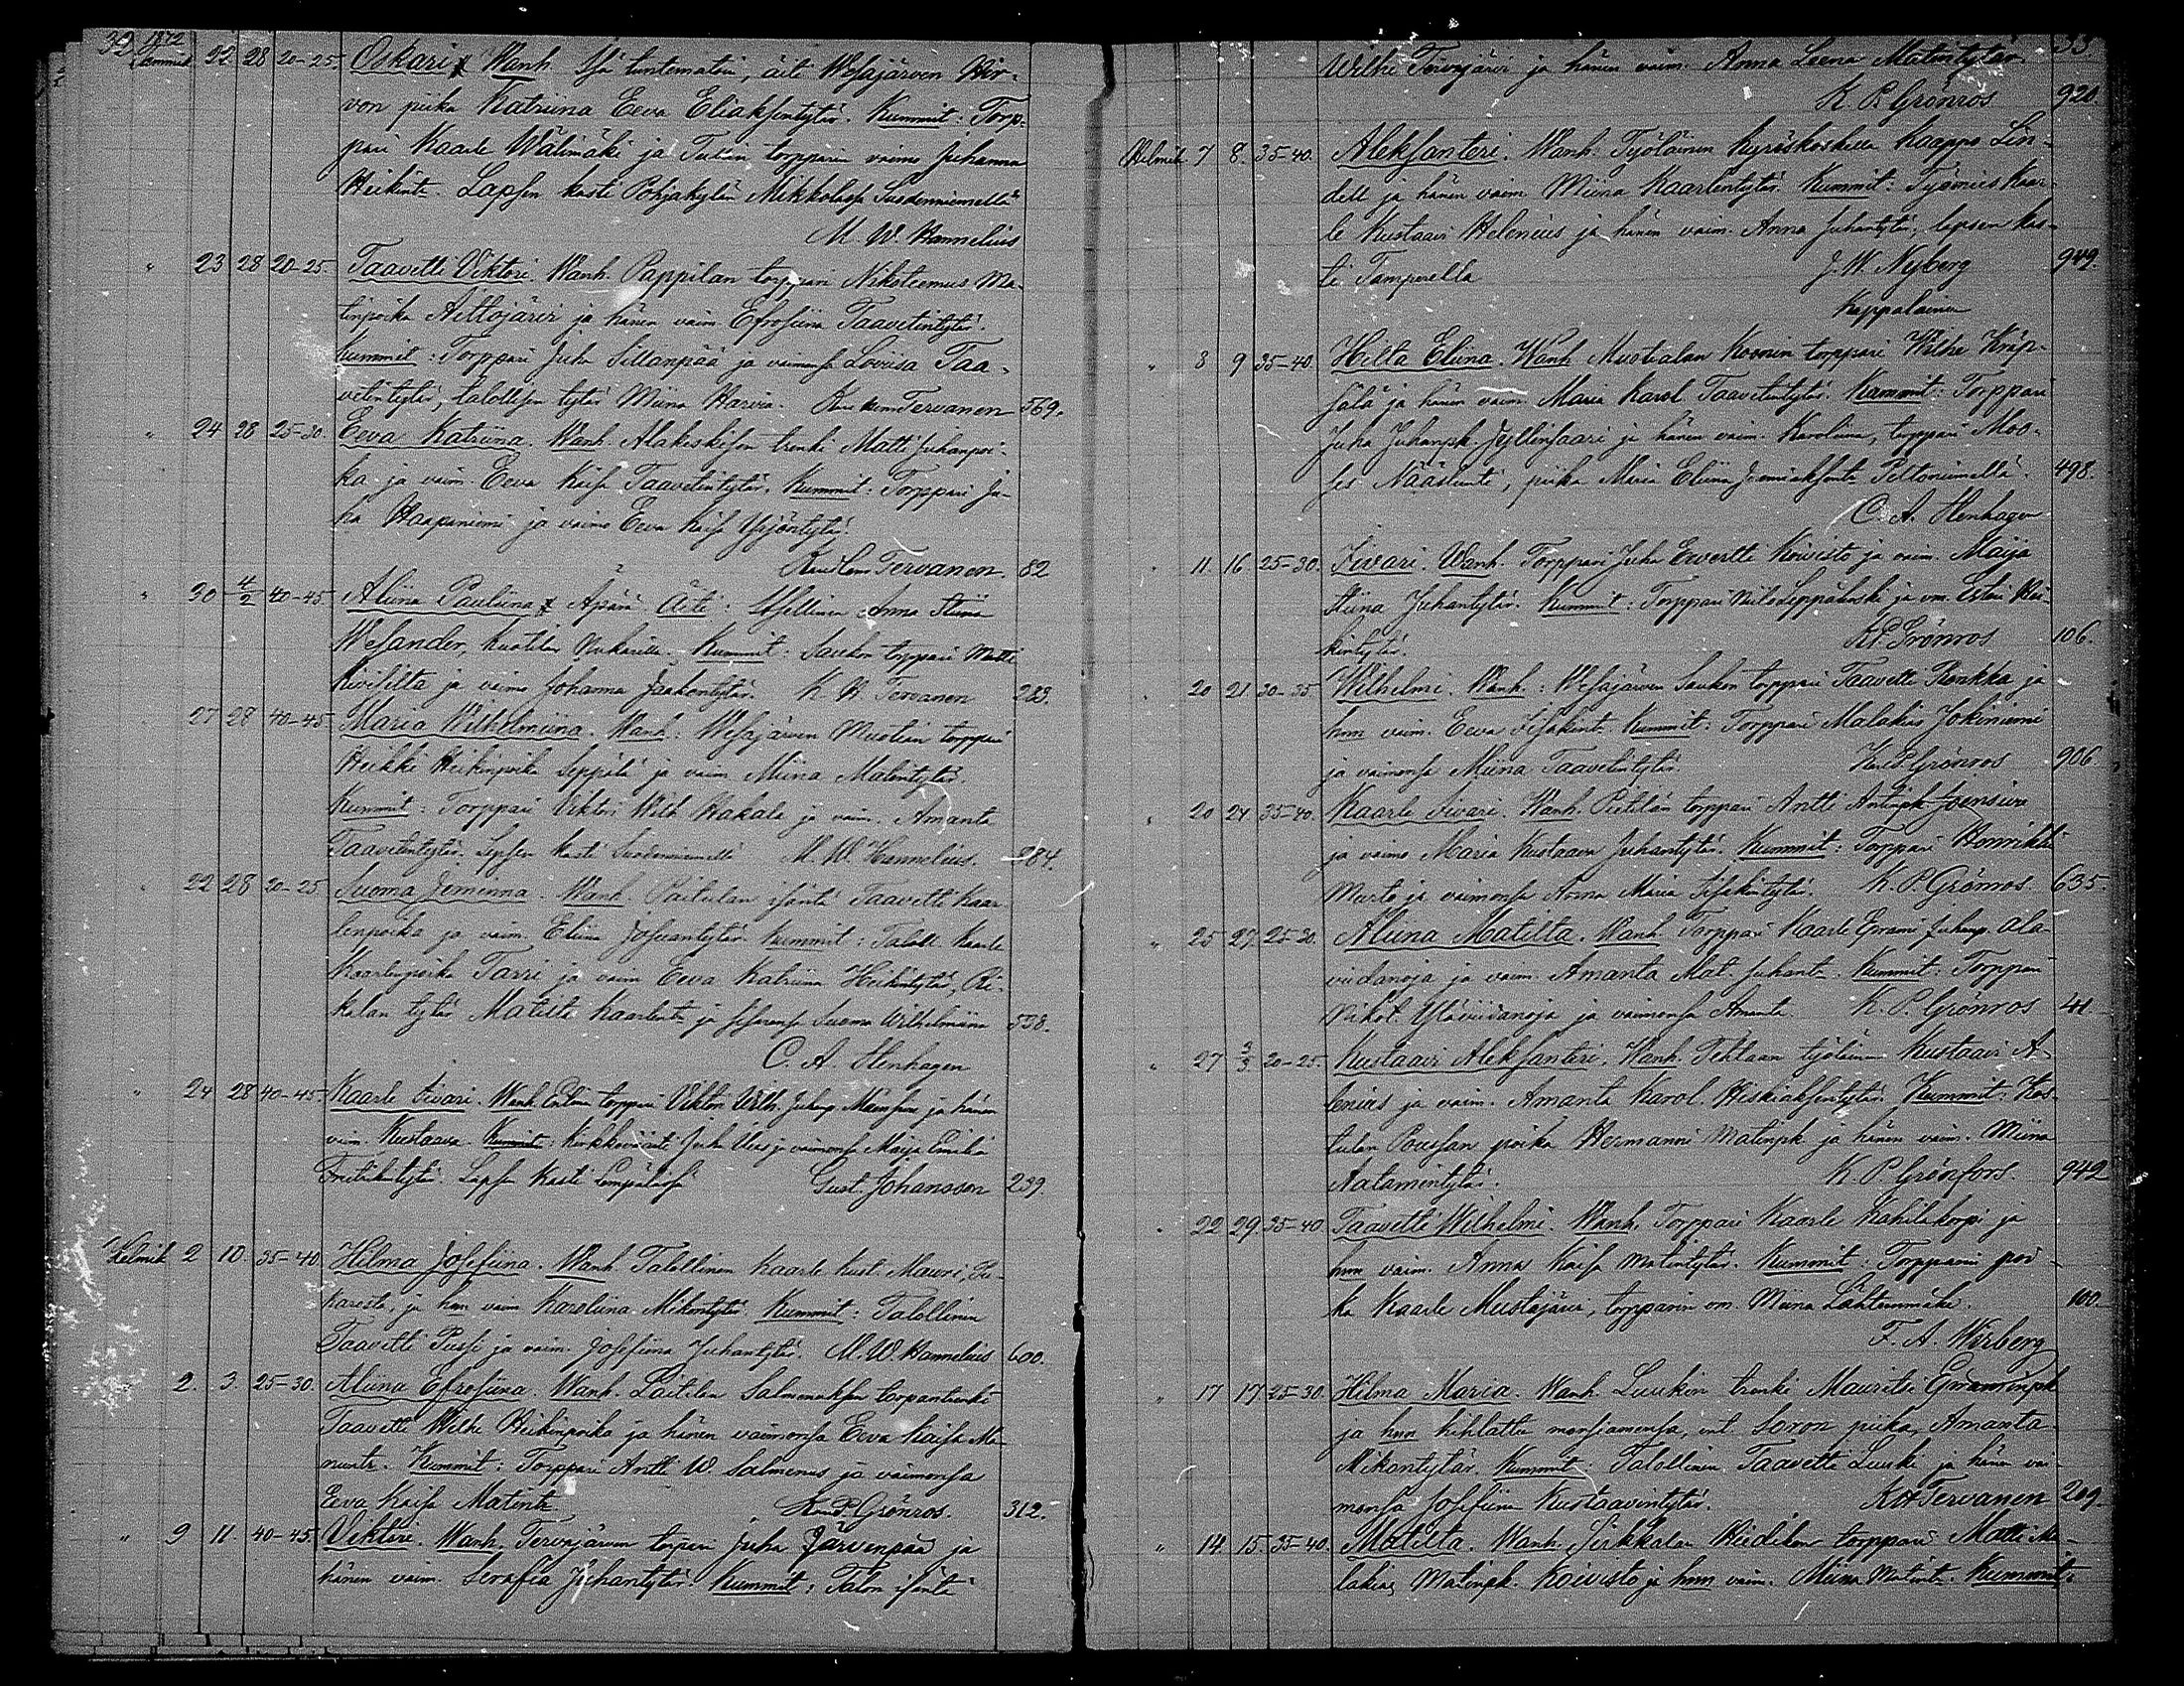 32. 1872
Tammik. 22 28 20-25. Oskari X Wanh. Isä tuntematoin, äiti Wesajärven Hir-
von piika Katriina Eeva Eliaksentytär. Kummit: Torp-
pari Kaarle Wälimäki ja torpparin vaimo Juhanna
Heikint. Lapsen kasti Pohjakylän Mikkolassa Suodenniemellä
M. W. Hannelius
" 23 28 20-25. Taavetti Viktori. Wanh. Pappilan torppari Nikoteemus Ma-
tinpoika Aittojärvi ja hänen vaim. Efrosiina Taavetintytär.
Kummit: Torppari Juha Sillanpää ja vaimonsa Loviisa Taa-
vetintytär, talollisen tytär Miina Harvia. Tervanen 569.
" 24 28 25-30. Eeva Katriina. Wanh. Alakeskisen trenki Matti Juhanpoi-
ka ja vaim. Eeva Kaisa Taavetintytär. Kummit: Torppari Ju-
ha Haapaniemi ja vaimo Eeva Kaisa Yrjöntytär.
Tervanen. 82
" 30 4/2 40-45. Aliina Pauliina X Äpärä. Äiti: Itsellinen Anna Stiina
Wesander, Kummit: Saukon torppari Matti
Kivisilta ja vaimo Johanna Jaakontytär. K. H. Tervanen 283.
27 28 40-45 Maria Wilhelmiina. Wanh: Wesajärven Muotian torppari
Heikki Heikinpoika Seppälä ja vaim. Miina Matintytär.
Kummit: Torppari Viktori Wilh Hakala ja vaim. Amanta
Taavetintytär. Lapsen kasti Suodenniemellä M. W. Hannelius. 284.
" 22 28 20-25 Suoma Jemima. Wanh. Paitulan isäntä Taavetti Kaar-
lenpoika ja vaim. Eliina Josuantytär. Kummit: Taloll. Kaarle
Kaarlenpoika Tarri ja vaim Eeva Katriina Heikintytär, Ri-
kalan tytär Matilta Kaarlent. ja sisarensa Suoma Wilhelmiina 598.
C. A. Stenhagen
" 24 28 40-45. Kaarle Iivari. Wanh. torppari Viktori Wilh. Juhanp. ja hänen
vaim. Kustaava. Kummit: Kirkkoväärti Juh. ja vaimonsa Maija Emilia
Fretrikintytär. Lapsen kasti Lempäälässä Gust. Johansson 239.
Helmik. 2 10. 35-40. Hilma Josefiina. Wanh. Talollinen Kaarle Kust. Mauri,
ja hnn vaim Karoliina Mikontytär. Kummit: Talollinen
Taavetti Pussi ja vaim. Josefiina Juhantytär. M. W. Hannelius 600.
" 2. 3. 25-30. Aliina Efrosiina. Wanh. Laitilan Salmenaksen torpantrenki
Taavetti Wilhe Heikinpoika ja hänen vaimonsa Eeva Kaisa Ma-
nunt. Kummit: Torppari Antti W. Salmenus ja vaimonsa
Eeva Kaisa Matint. Grönros. 312.
" 9 11. 40-45. Viktori. Wanh. Tervajärven torppari Juha Järvenpää ja
hänen vaim. Serafia Juhantytär. Kummit: Talon isäntä
33
Wilhe Tervajärvi ja hänen vaim. Anna Leena Matintytär.
K. P. Grönros 920
Helmik 7 8. 35-40. Aleksanteri. Wanh. Työläinen Kyröskoskella Kaappo Lin-
dell ja hänen vaim. Miina Kaarlentytär. Kummit: Työmies Kaar-
le Kustaavi Helenius ja hänen vaim. Anna Juhantytär, lapsen kas-
ti Tampereella J. W. Nyberg 949.
Kappalainen
" 8 9 35-40. Helta Eliina. Wanh. Mustialan Koonin torppari Wilhe Kräp-
sälä ja hänen vaim. Maria Karol. Taavetintytär. Kummit: Torppari
Juha Juhanpk. Jyllinsaari ja hänen vaim. Karoliina, torppari Moo-
ses Näästinti, piika Maria Eliina Jeremiaksent. Peltoniemellä. 498.
C. A. Stenhagen
" 11. 16 25-30. Iivari. Wanh. Torppari Juha Evertti Koivisto ja vaim. Maija
Stiina Juhantytär. Kummit: Torppari Niilo Leppälaski ja vm. Esteri Hei-
kintytär. K. P. Grönros 106.
" 20 21 30-35 Wilhelmi. Wanh: Wesajärven Saukon torppari Taavetti Renkka ja
hnn vaim. Eeva Iisakint. Kummit: Torppari Malakias Jokiniemi
ja vaimonsa Miina Taavetintytär. K. P. Grönros 906.
" 20 24 35-40. Kaarle Iivari. Wanh. Pietilän torppari Antti Antinpk. Joensivu
ja vaimo Maria Kustaava Juhantytär. Kummit: Torppari Henrikki
Murto ja vaimonsa Anna Maria Iisakintytär. K. P. Grönros. 635.
" 25 27. 25-30. Aliina Matilta. Wanh. Torppari Kaarle Eframi Juhanp. Ala-
viidanoja ja vaim. Amanta Mat. Juhant. Kummit: Torppari
Nikot. Yläviidanoja ja vaimonsa Amanta. K. P. Grönros 41.
" 27 3/3 20-25. Kustaavi Aleksanteri. Wanh. Tehtaan työläinen Kustaavi A-
lenius ja vaim. Amanta Karol. Hiskiaksentytär. Kummit: Kos-
tulan Poussan poika Hermanni Matinpk. ja hänen vaim. Miina
Aatamintytär. K. P. Grönfors. 942
" 22 29. 35-40 Taavetti Wilhelmi. Wanh. Torppari Kaarle Kahilakorpi ja
hnn vaim. Anna Kaisa Matintytär. Kummit: Torpparin poi-
ka Kaarle Mustajärvi, torpparin vm. Miina Lähteenmäki. 100.
F. A. Wirberg
" 17 17 25-30. Hilma Maria. Wanh. Luukin trenki Mauritsi Efraiminpk
ja hnn kihlattu morsiamensa, ent. Soron piika, Amanta
Mikontytär. Kummit: Talollinen Taavetti Luuki ja hänen vai-
monsa Josefiina Kustaavintytär. K H Tervanen 209.
" 14 15. 35-40. Matilta. Wanh. Sirkkalan Hiedikon torppari Matti Ma-
lakias Matinpk. Koivisto ja hnn vaim. Miina Matint. Kummit: